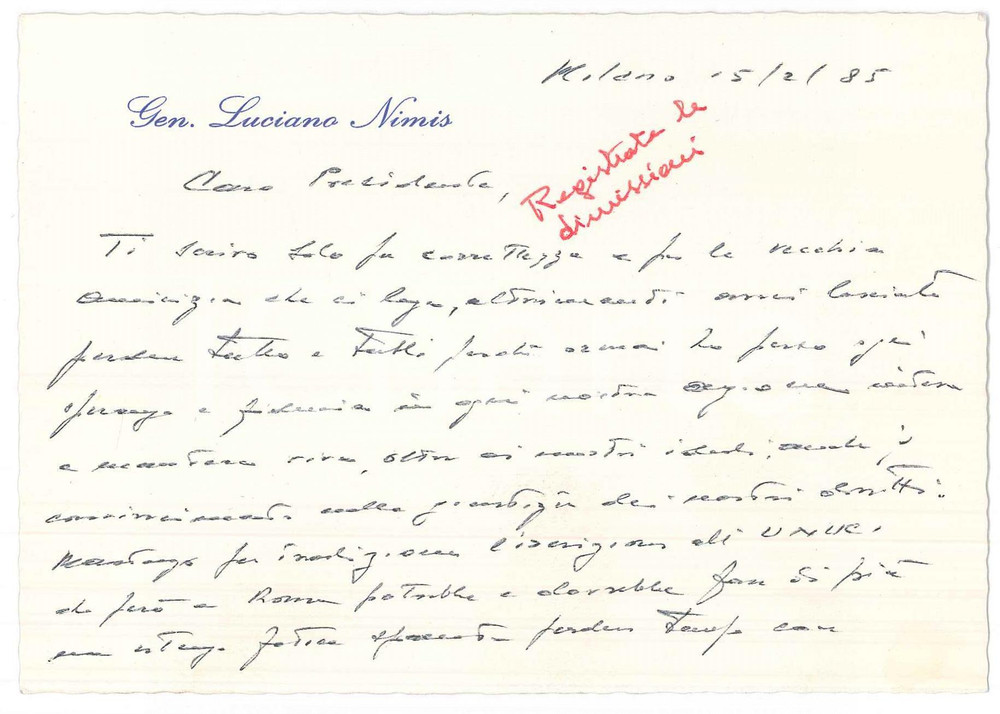 Milano 15/2/85
Gen. Luciano Nimis
Registrate le
dimissioni
Caro Presidente,
Ti scrivo solo per correttezza e per la vecchia
amicizia che ci lega, altrimenti avrei lasciato
perdere tutto e tutti perché ormai ho perso ogni
speranza e fiducia in ogni nostra azione intesa
a mantenere viva, oltre ai nostri ideali, anche il
convincimento nella giustizia dei nostri diritti.
Mantengo per tradizione l'iscrizione all'UNUCI
che però a Roma potrebbe e dovrebbe fare di più
ma ritengo fatica sprecata perdere tempo con